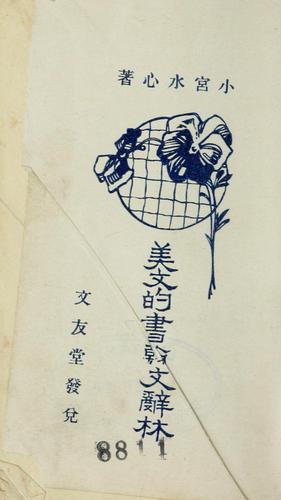 小宮水心著
美文的書翰文辭林
文友堂發兌
8811